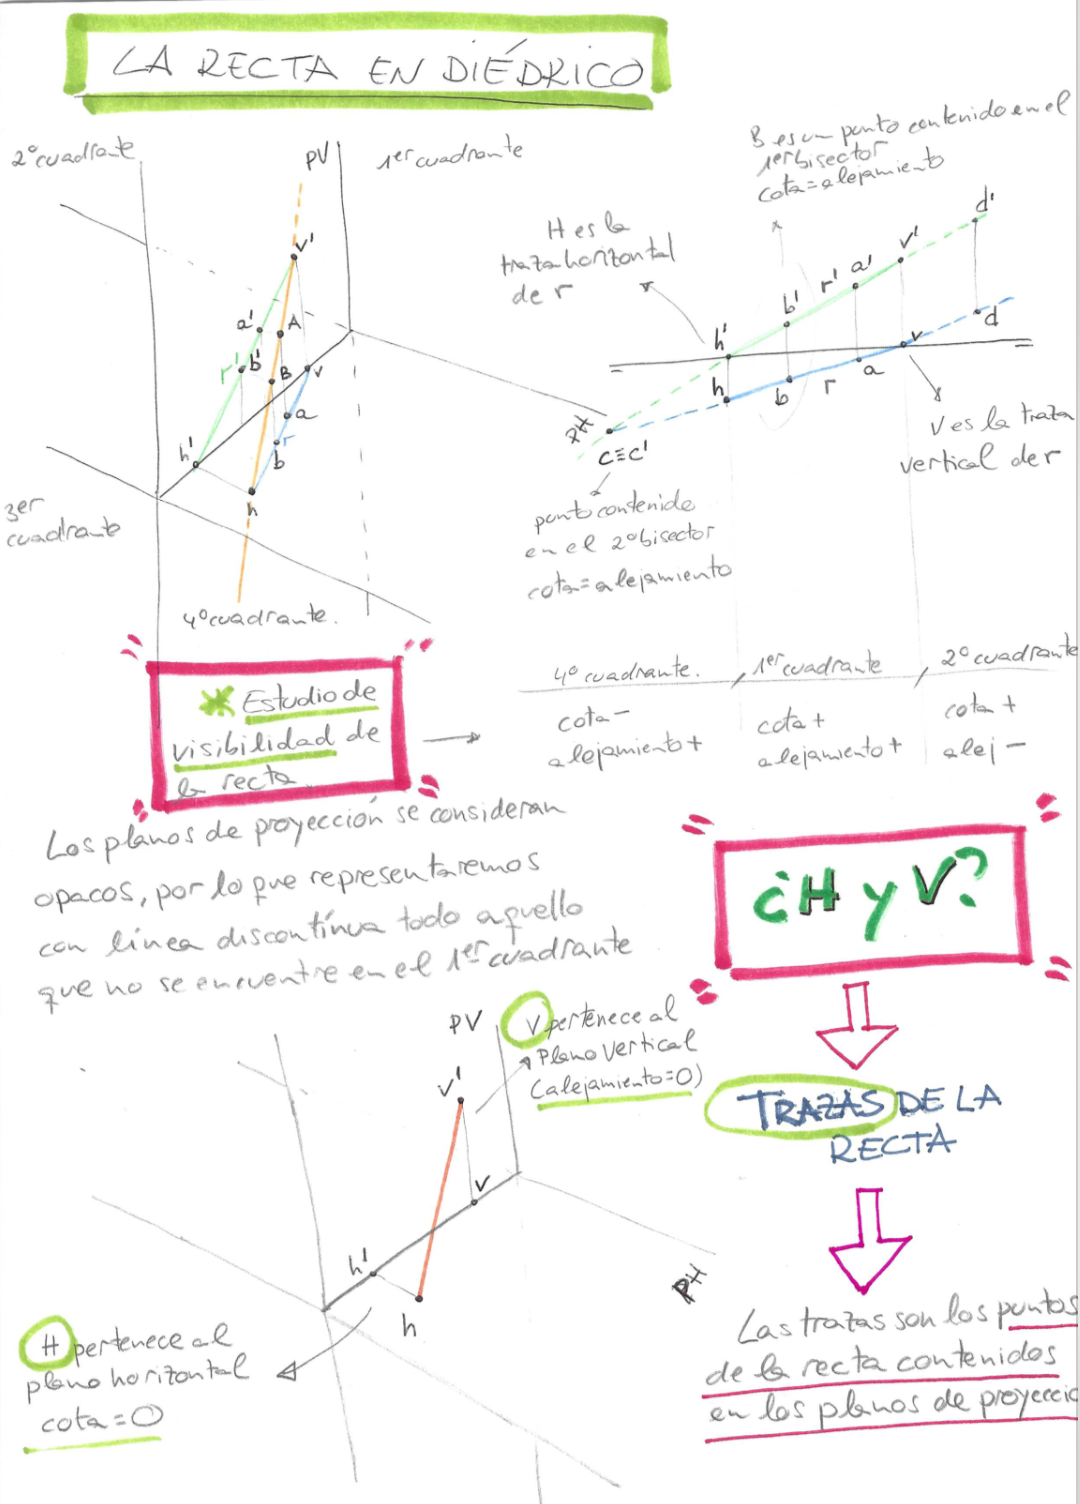 LA RECTA EN DIÉDRICO
2º cuadrante
PV
1er cuadrante
v'
a'
A
r'
b'
B
v
a
r
b
h'
h
PH
3er
cuadrante
4º cuadrante.
B es un punto contenido en el
1er bisector
cota=alejamiento
H es la
traza horizontal
de r
d'
v'
a'
r'
b'
h'
d
v
a
r
b
h
c≡c'
V es la traza
vertical de r
punto contenido
en el 2º bisector
cota=alejamiento
4º cuadrante.
cota -
alejamiento +
1er cuadrante
cota +
alejamiento +
2º cuadrante
cota +
alej -
Estudio de
visibilidad de
la recta
Los planos de proyección se consideran
opacos, por lo que representaremos
con línea discontínua todo aquello
que no se encuentre en el 1er cuadrante
¿H y V?
TRAZAS DE LA
RECTA
Las trazas son los puntos
de la recta contenidos
en los planos de proyecció
PV
V pertenece al
Plano Vertical
(alejamiento=0)
v'
v
h'
h
PH
H pertenece al
plano horizontal
cota=0